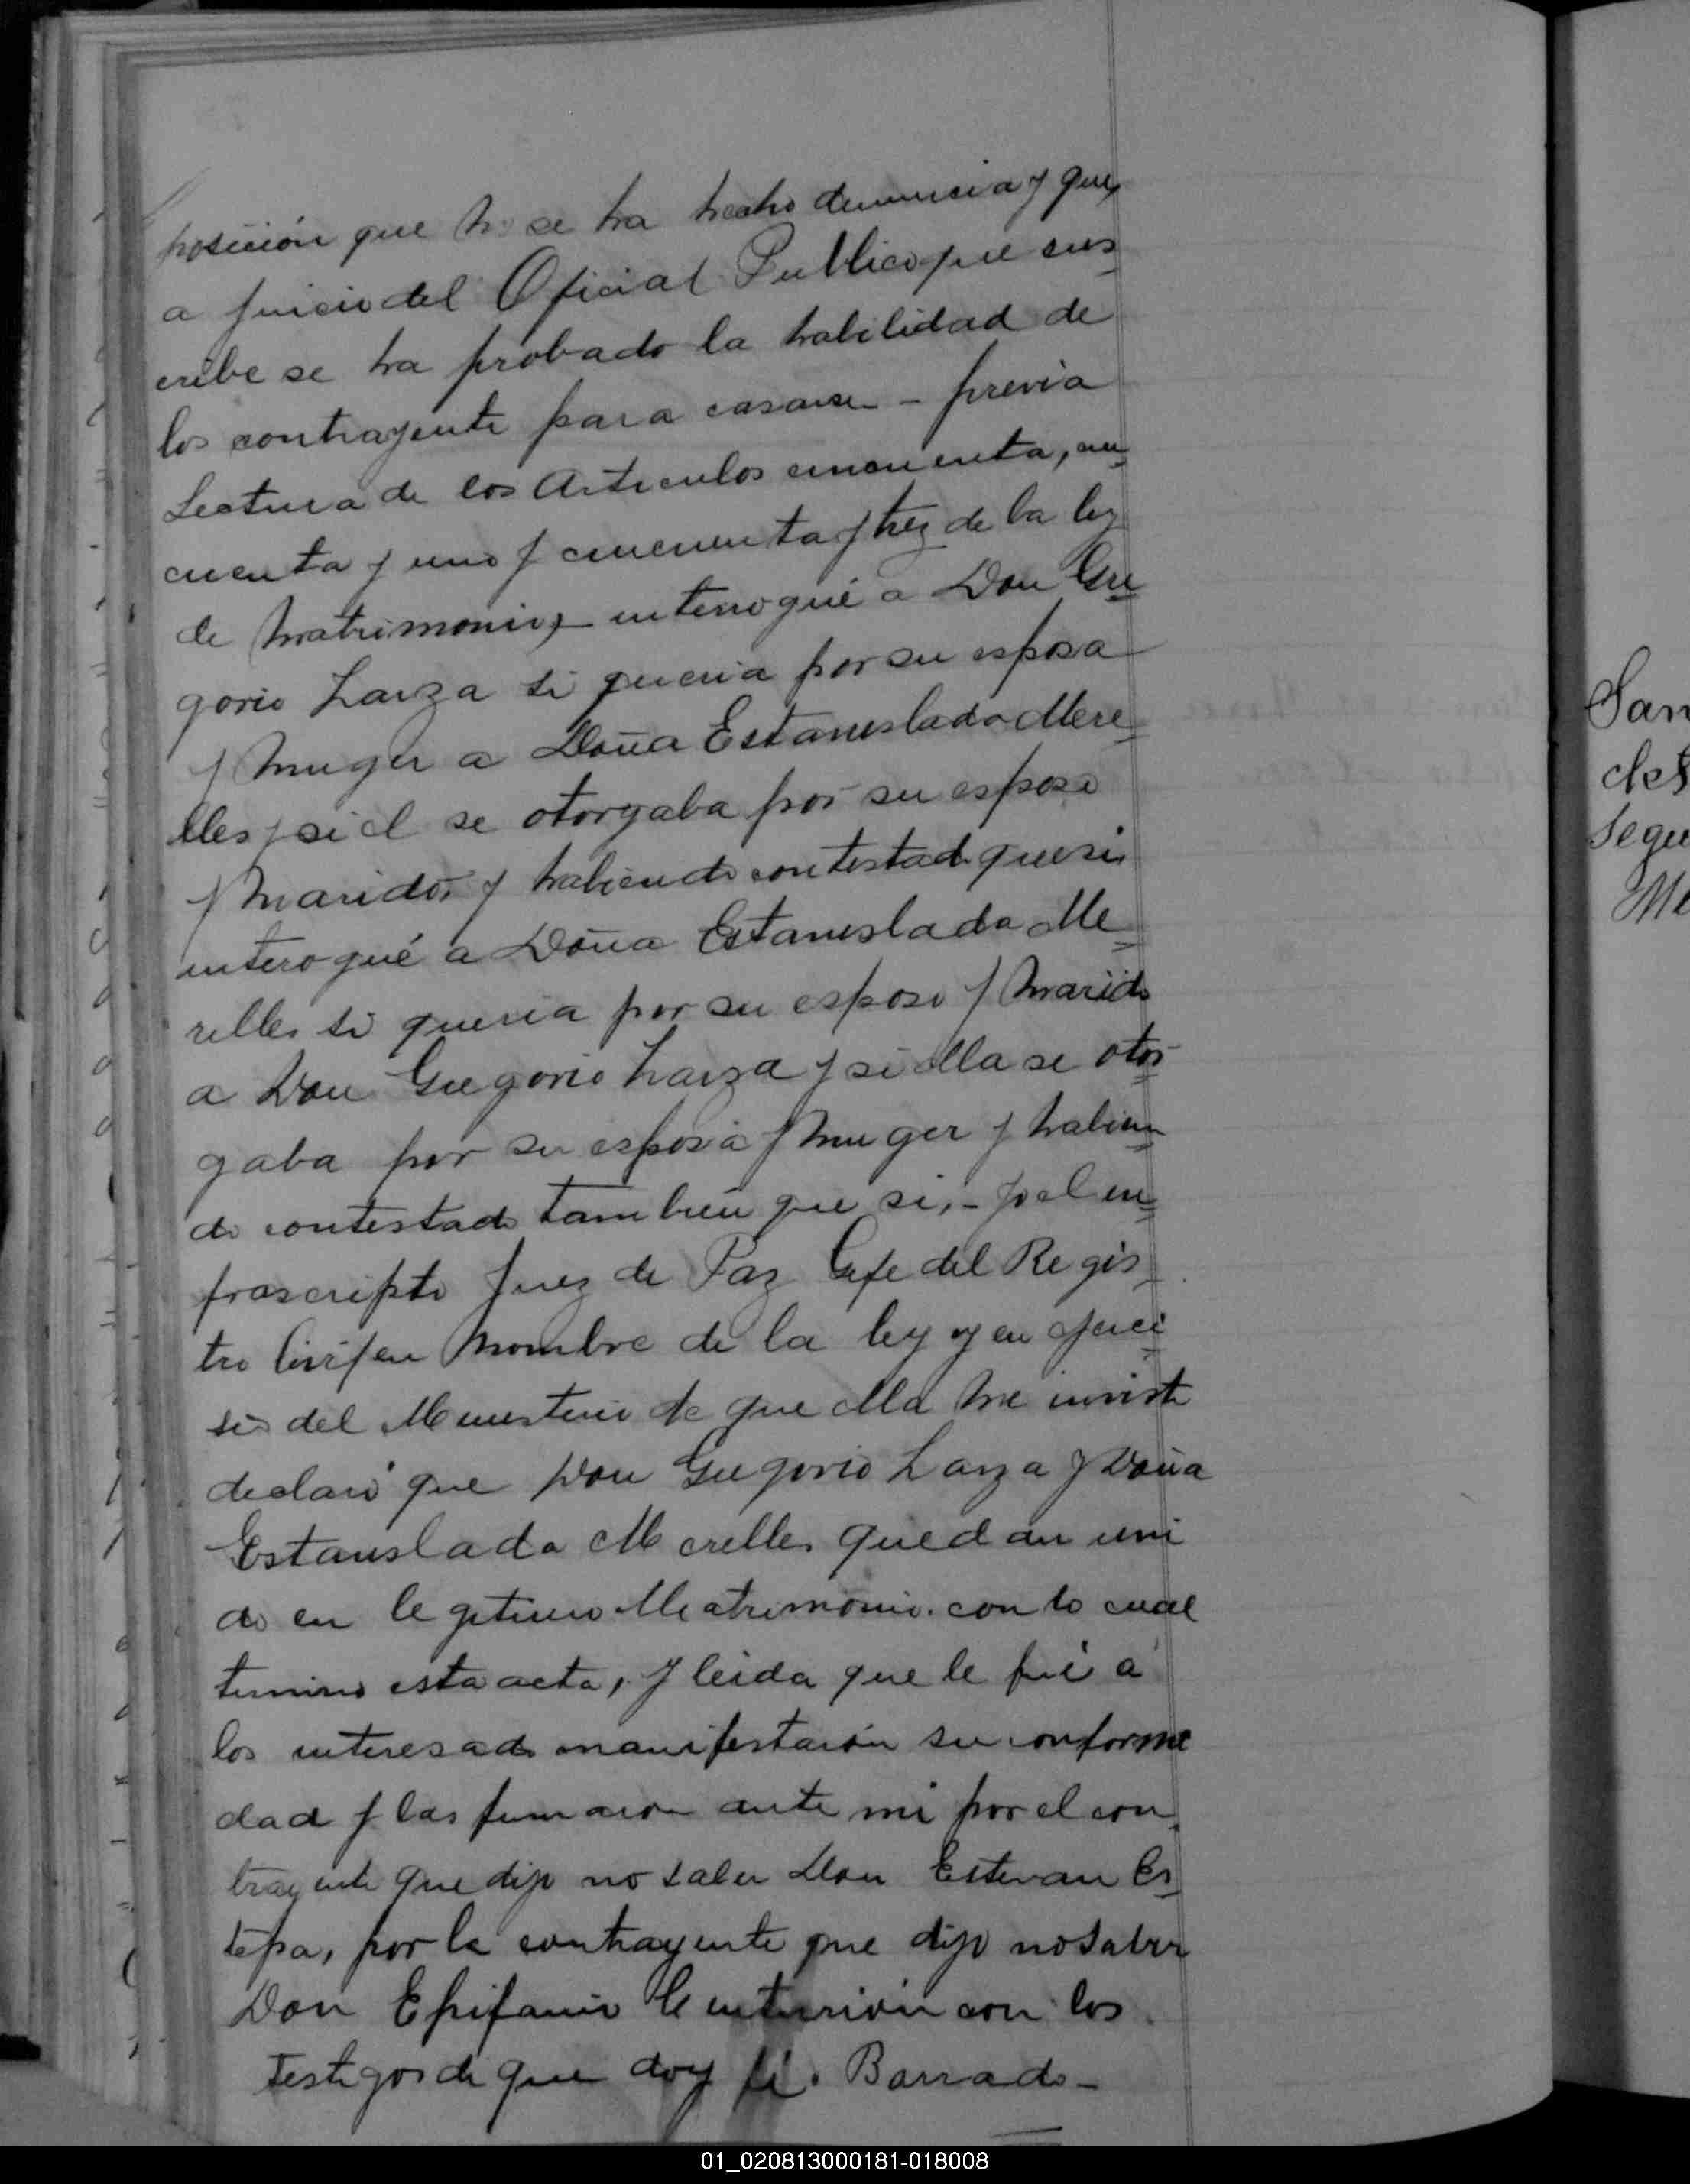 posición que no se ha hecho denuncia y que
a juicio del Oficial Publico que sus
cribe se ha probado la habilidad de
los contrayente para casarse - previa
Lectura de los Articulos cincuenta, cin
cuenta y uno y cincuenta y tres de la ley
de Matrimonio, - interrogué a Don Gre
gorio Larza si queria por su esposa
y muger a Doña Estanislada Mere
lles y si el se otorgaba por su esposo
y marido, y habiendo contestado que si,
interogué a Doña Estanislada Me
relles si queria por su esposo y marido
a Don Gregorio Larza y si ella se otor
gaba por su esposa y muger y habien
do contestado tambien que si, - yo el in
frascripto Juez de Paz Gefe del Regis
tro Civil en nombre de la ley y en ejerci
sio del Ministerio de que ella me inviste
declaro que Don Gregorio Larza y Doña
Estanslada Merelles quedan uni
do en legitimo Matrimonio. con lo cual
termino esta acta, y leida que le fué a
los interesado manifestaron su conformi
dad y las firmaron ante mi por el con
trayente que dijo no saber Don Estevan Es
tepa, por la contrayente que dijo no saber
Don Epifanio Centurión con los
Testigos de que doy fé. Barrado -
San
des
segu
Me
01_020813000181-018008